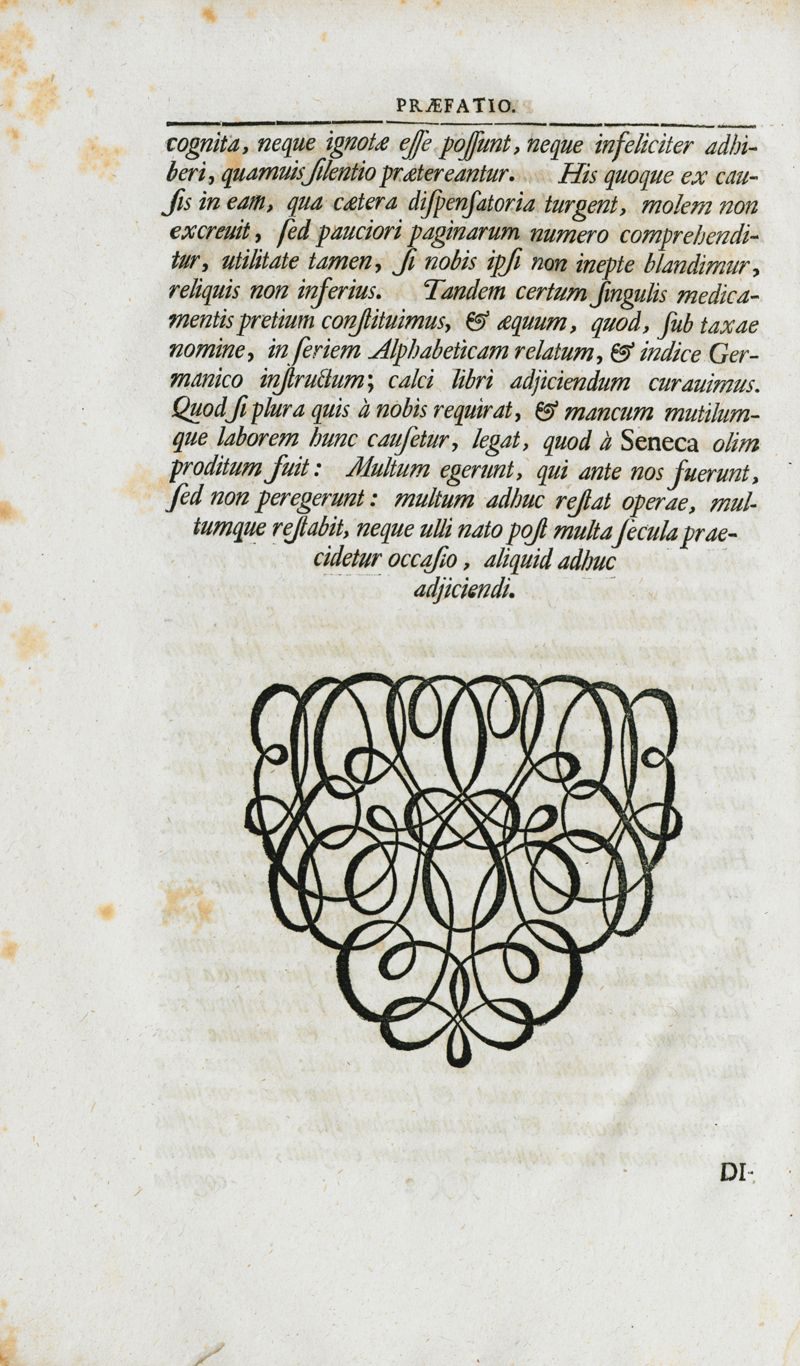 PRÆFATIO.
cognita, neque ignotæ eſſe poſſunt, neque infeliciter adhi-
beri, quamuis ſilentio prætereantur. His quoque ex cau-
ſis in eam, qua cætera diſpenſatoria turgent, molem non
excreuit, ſed pauciori paginarum numero comprehendi-
tur, utilitate tamen, ſi nobis ipſi non inepte blandimur,
reliquis non inferius. Tandem certum ſingulis medica-
mentis pretium conſtituimus, & æquum, quod, ſub taxae
nomine, in ſeriem Alphabeticam relatum, & indice Ger-
manico inſtructum; calci libri adjiciendum curauimus.
Quod ſi plura quis à nobis requirat, & mancum mutilum-
que laborem hunc cauſetur, legat, quod à Seneca olim
proditum fuit: Multum egerunt, qui ante nos fuerunt,
ſed non peregerunt: multum adhuc reſtat operae, mul-
tumque reſtabit, neque ulli nato poſt multa ſecula prae-
cidetur occaſio, aliquid adhuc
adjiciendi.
DI-